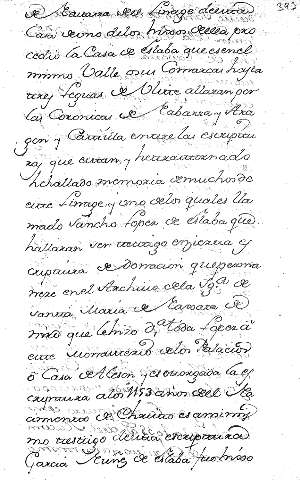 393
de Navarra del Linage de esta
Casa de uno de los hixos de ella pro
cedio la Casa de Eslaba que es en el
mismo Valle, o sus Comarcas hasta
tres leguas de Ulite allaran por
las Coronicas de Nabarra, y Ara
gon y Castilla entre las escriptu
ras que
he hallado memoria de muchos de
este Linage, y uno de los quales lla
mado Sancho Lopez de Eslaba que
hallaran ser testigo en cierta es
criptura de Donacion que perma
nece en el Archivo de la Yg.ª de
Santa Maria de Naxara de
que hizo D.ª toda Lopez a
este Monasterio de los Palacios
o Casa de Aleson, y es otorgada la es
criptura a los 1153 años del Na
cimiento de Christo es assi mis
mo testigo de esta escriptura
Garcia Nunez de Eslaba, fue hixo